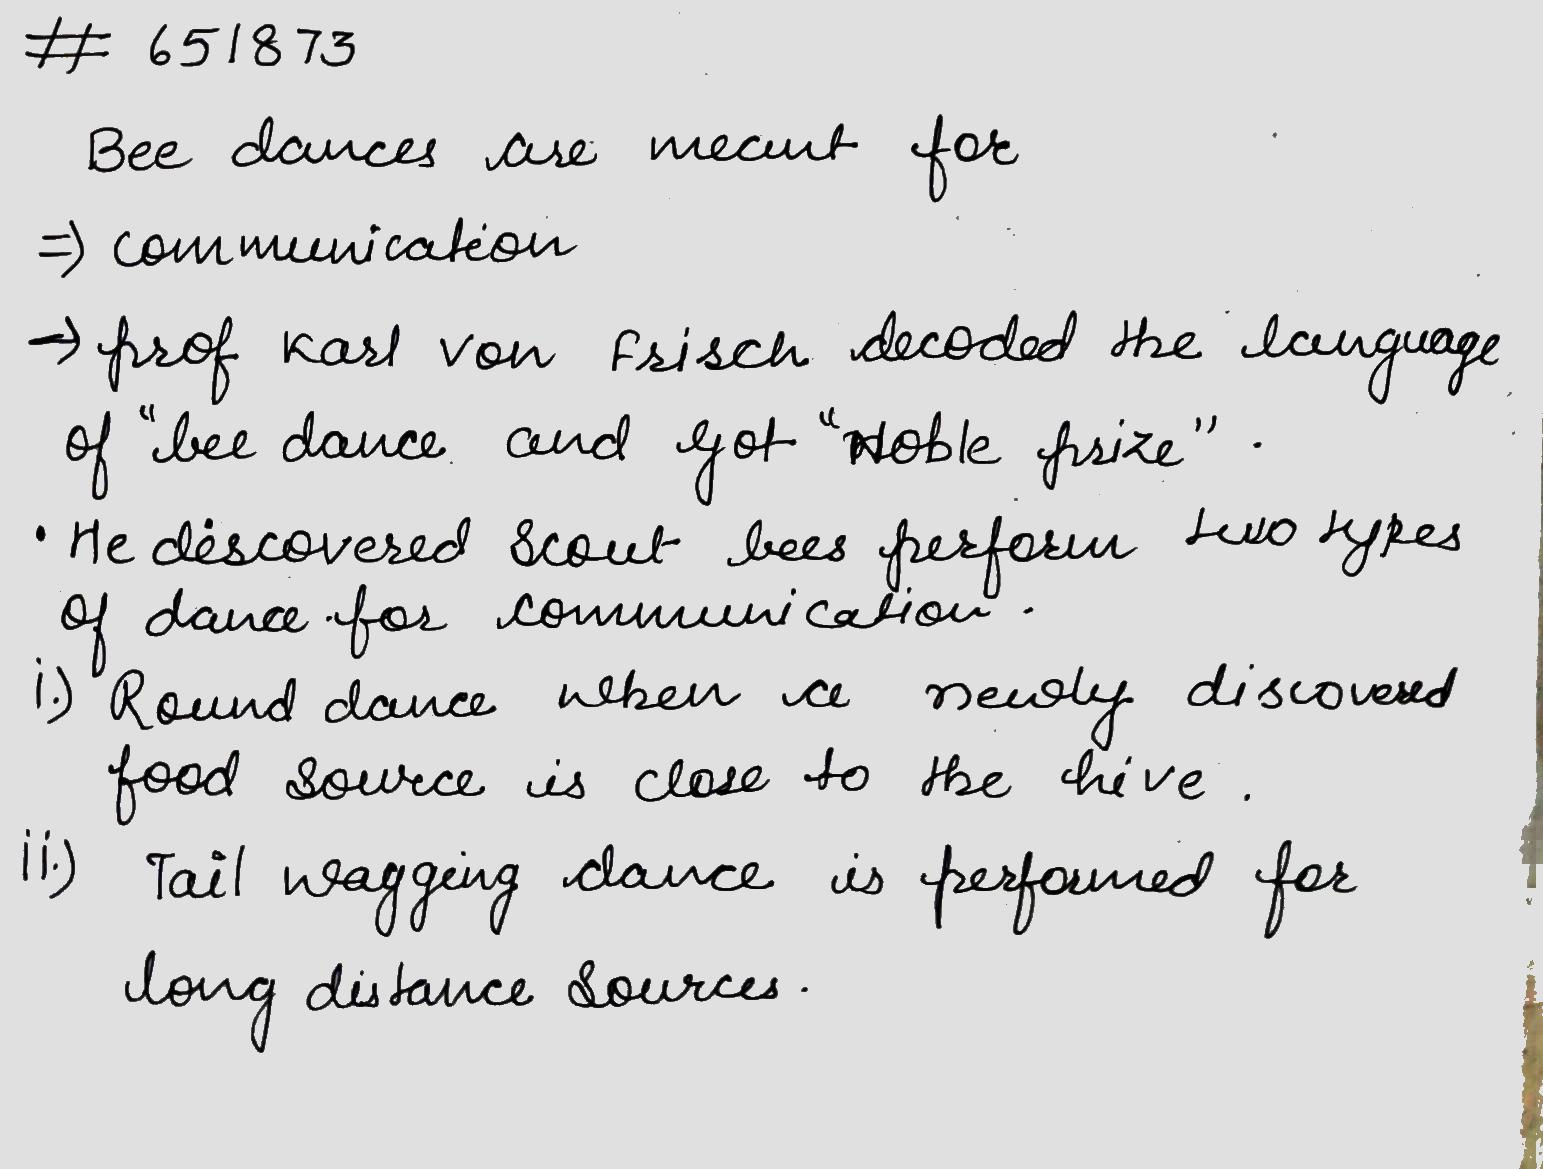 # 651873
Bee dances are meant for
=) communication
→ prof Karl von Frisch decoded the language
of "bee dance and got "Noble prize".
• He discovered Scout bees perform two types
of dance for communication.
i.) Round dance when a newly discovered
food source is close to the hive.
ii.) Tail wagging dance is performed for
long distance Sources.